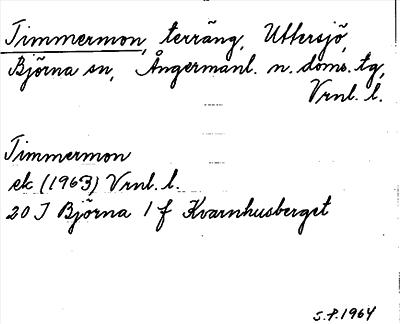 Timmermon, terräng, Uttersjö,
Björna sn, Ångermanl. n. doms. tg,
Vrnl. l.
Timmermon
ek (1963) Vrnl. l.
20 I Björna 1 f Kvarnhusberget
S.P. 1964